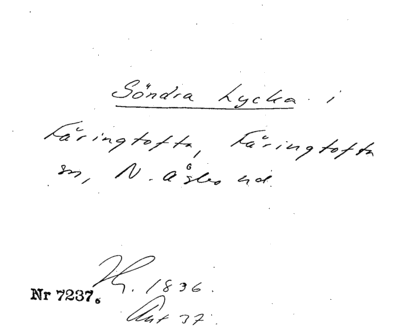 Söndra Lycka i
Färingtofta, Färingtofta
sn, N. Åsbo hd.
Hg. 1836.
Nr 7237.
Ant 37.